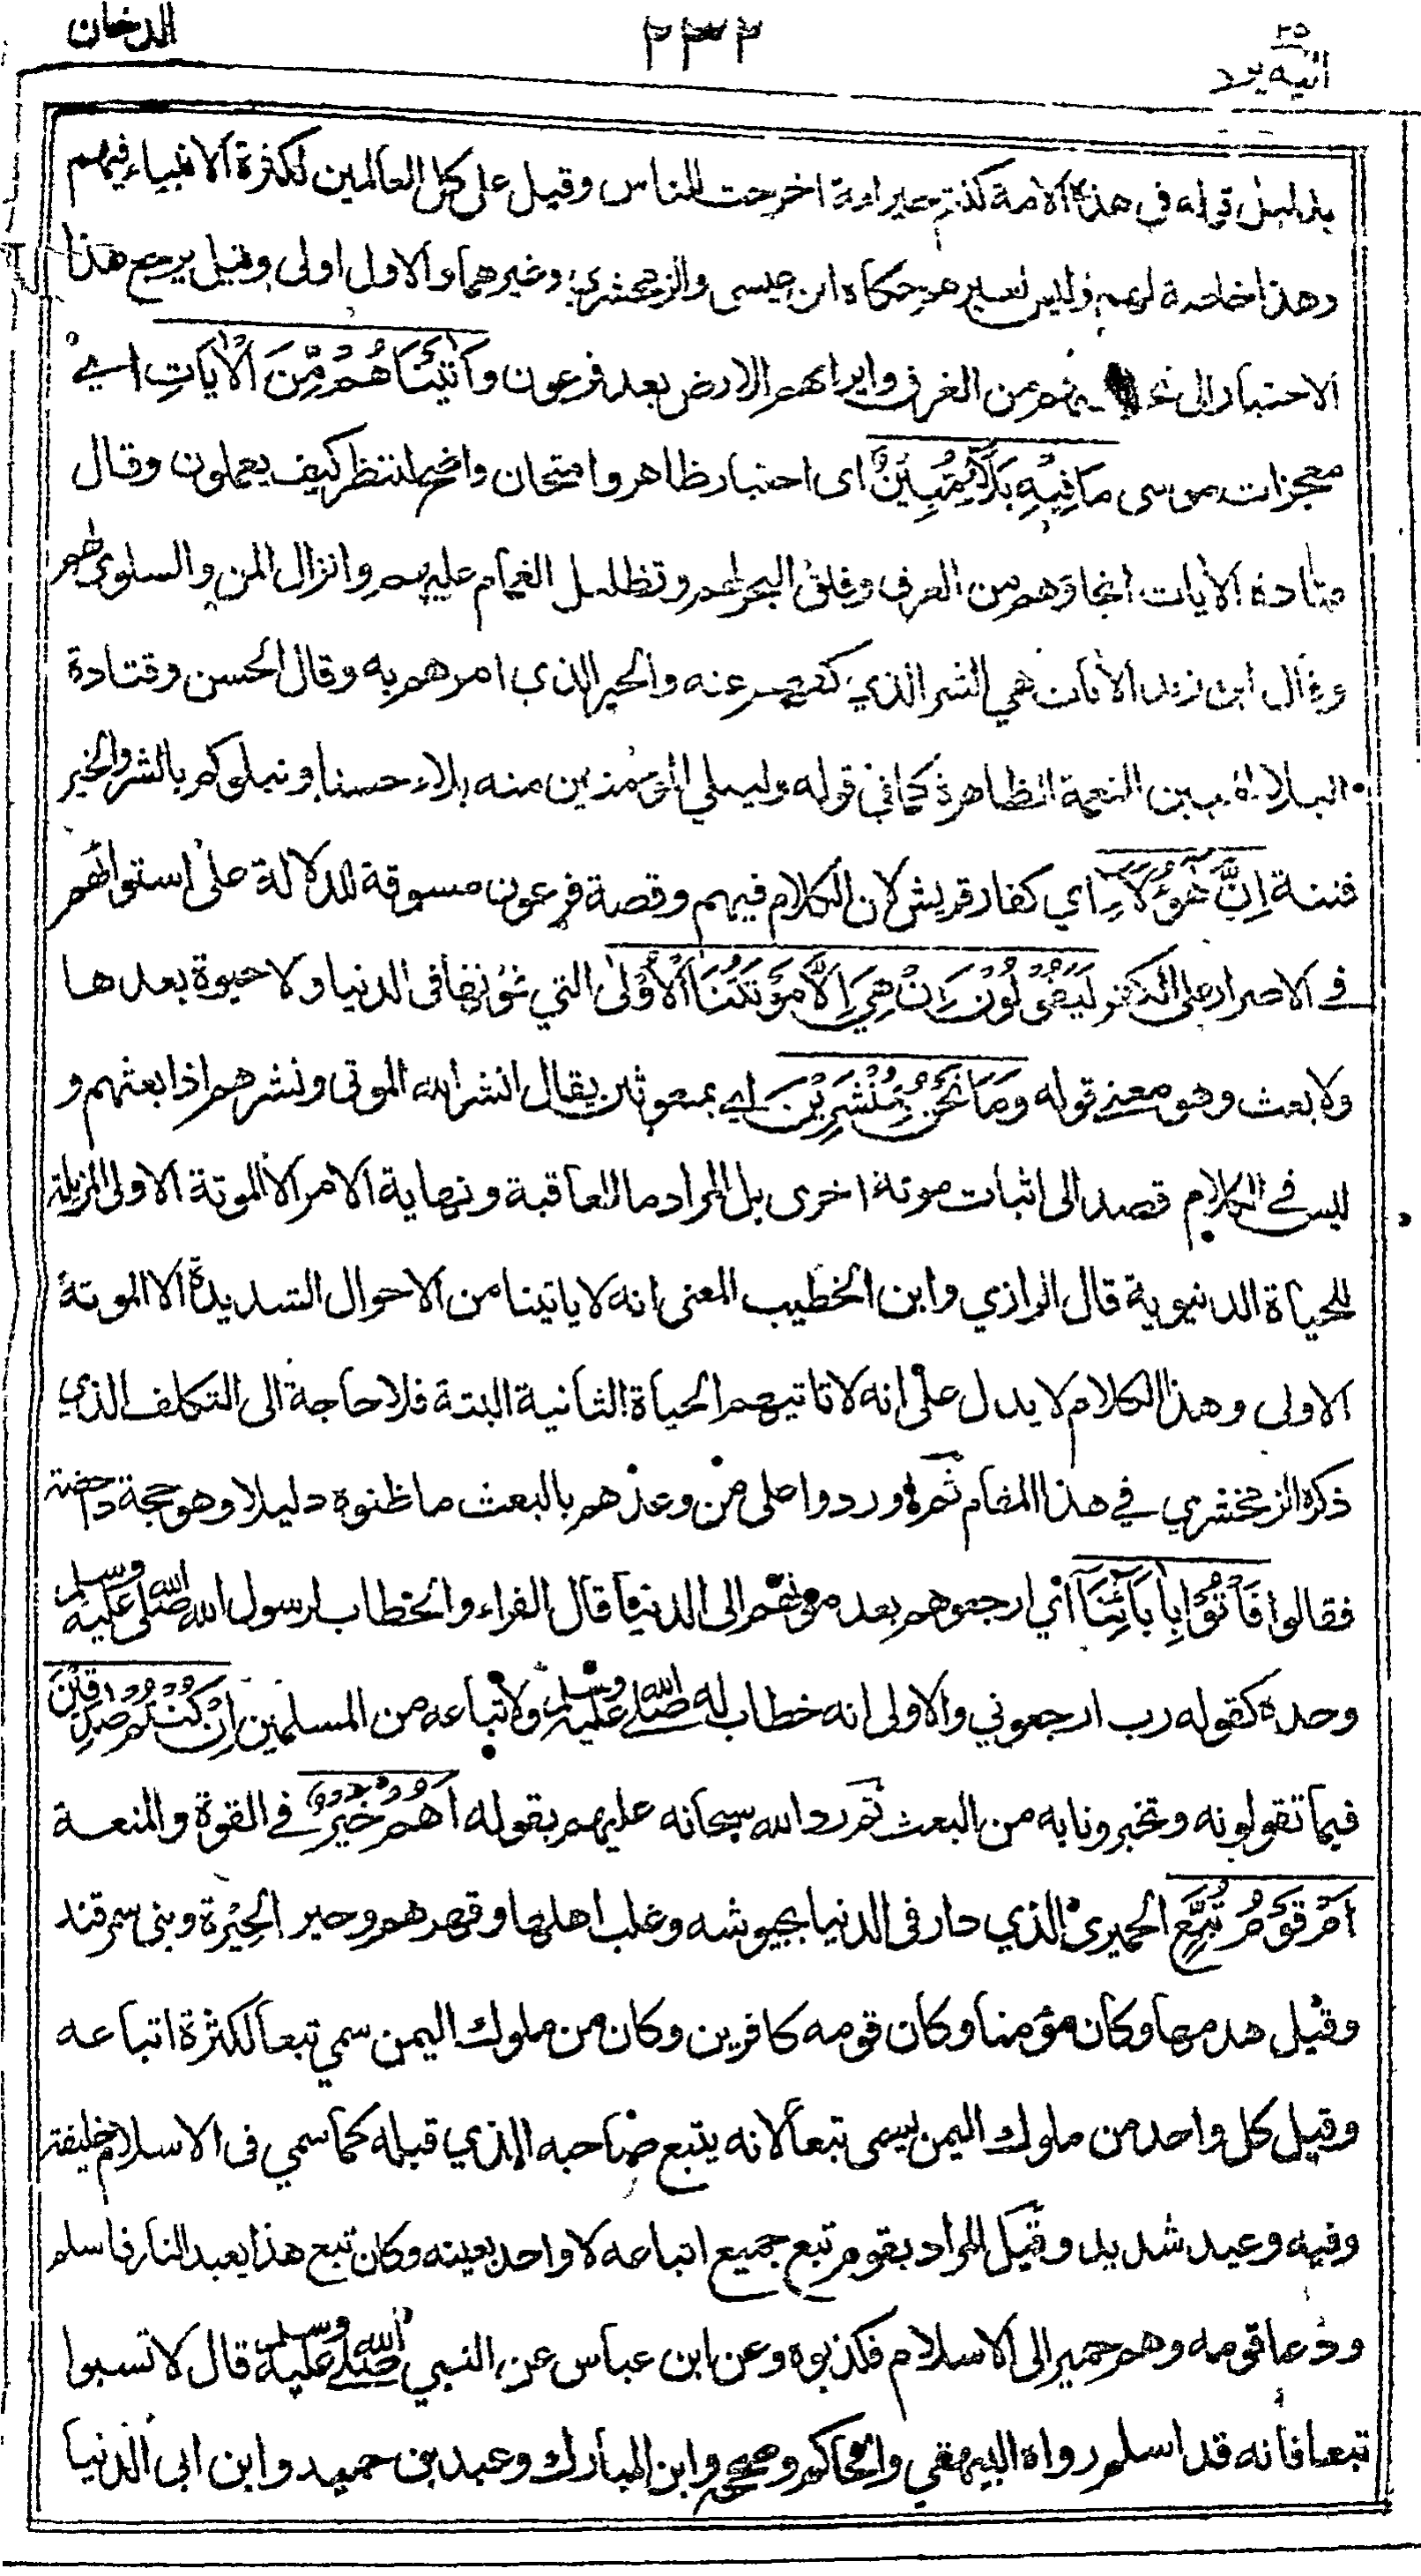 اليه يرد ٢٥
٢٣٢
الدخان
بدليل قوله في هذه الامة كنتم خير امة اخرجت للناس وقيل على كل العالمين لكثرة الانبياء فيهم
وهذا خاصة لهم وليس لغيرهم حكاه ابن عيسى والزمخشري وغيرهما والاول اولى وقيل يرجع هذا
الاختيار الى من الغرق وايراثهم الارض بعد فرعون وَآتَيْنَاهُمْ مِّنَ الْآيَاتِ اي
معجزات موسى مَا فِيْهِ بَلَآءٌ مُّبِيْنٌ اى اختبار ظاهر وامتحان واضح لننظر كيف يعملون وقال
قتادة الآيات انجاؤهم من الغرق وفلق البحر لهم وتظليل الغمام عليهم وانزال المن والسلوى لهم
وقال ابن زيد الآيات هي الشر الذي كفهم عنه والخير الذي امرهم به وقال الحسن وقتادة
البلاء المبين النعمة الظاهرة كما في قوله وليبلي المؤمنين منه بلاء حسنا ونبلوكم بالشر والخير
فتنة اِنَّ هَؤُلَآءِ اي كفار قريش لان الكلام فيهم وقصة فرعون مسوقة للدلالة على استوائهم
في الاصرار على الكفر لَيَقُوْلُوْنَ اِنْ هِيَ اِلَّا مَوْتَتُنَا الْاُوْلٰى التي نموتها فى الدنيا ولا حيوة بعدها
ولا بعث وهو معنى قوله وَمَا نَحْنُ بِمُنْشَرِيْنَ اي بمبعوثين يقال انشر الله الموتى ونشرهم اذا بعثهم و
ليس في الكلام قصد الى اثبات موتة اخرى بل المراد ما العاقبة ونهاية الامر الا الموتة الاولى المزيلة
للحياة الدنيوية قال الرازي وابن الخطيب المعنى انه لا ياتينا من الاحوال الشديدة الا الموتة
الاولى وهذا الكلام لا يدل على انه لا تاتيهم الحياة الثانية البتة فلا حاجة الى التكلف الذي
ذكره الزمخشري في هذا المقام ثم وردوا على من وعدهم بالبعث ما ظنوه دليلا وهو حجة داحضة
فقالوا فَأْتُوْا بِاٰبَآئِنَآ اي ارجعوهم بعد موتهم الى الدنيا قال الفراء والخطاب لرسول الله صلى الله عليه وسلم
وحده كقوله رب ارجعوني والاولى انه خطاب له صلى الله عليه وسلم ولاتباعه من المسلمين اِنْ كُنْتُمْ صٰدِقِيْنَ
فيما تقولونه وتخبرونا به من البعث ثم رد الله سبحانه عليهم بقوله اَهُمْ خَيْرٌ في القوة والمنعة
اَمْ قَوْمُ تُبَّعٍ الحميرى الذي دار فى الدنيا بجيوشه وغلب اهلها وقهرهم وحير الحيرة وبنى سمرقند
وقيل هدمها وكان مؤمنا وكان قومه كافرين وكان من ملوك اليمن سمي تبعا لكثرة اتباعه
وقيل كل واحد من ملوك اليمن يسمى تبعا لانه يتبع صاحبه الذي قبله كما سمي فى الاسلام خليفة
وفيه وعيد شديد وقيل المراد بقوم تبع جميع اتباعه لا واحد بعينه وكان تبع هذا يعبد النار فاسلم
ودعا قومه وهم حمير الى الاسلام فكذبوه وعن ابن عباس عن النبي صلى الله عليه وسلم قال لا تسبوا
تبعا فانه قد اسلم رواه البيهقي والحاكم وصححه وابن المبارك وعبد بن حميد وابن ابى الدنيا